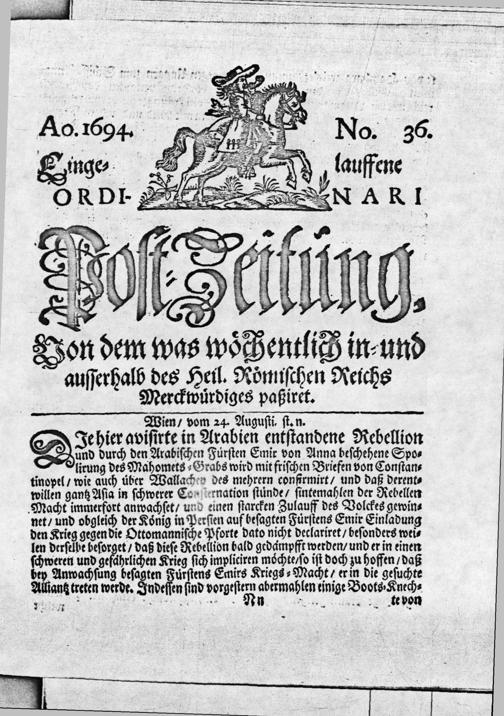 Ao. 1694.
No. 36.
Einge-
lauffene
ORDI-
NARI
Post-Zeitung,
Von dem was wöchentlich in- und
ausserhalb des Heil. Römischen Reichs
Merckwürdiges paßiret.
Wien / vom 24. Augusti. st. n.
DJe hier avisirte in Arabien entstandene Rebellion
und durch den Arabischen Fürsten Emir von Anna beschehene Spo-
lirung des Mahomets-Grabs wird mit frischen Briefen von Constan-
tinopel / wie auch über Wallachey des mehrern confirmirt / und daß derent-
willen gantz Asia in schwerer Consternation stünde / sintemahlen der Rebellen
Macht immerfort anwachset / und einen starcken Zulauff des Volckes gewin-
net / und obgleich der König in Persien auf besagten Fürstens Emir Einladung
den Krieg gegen die Ottomannische Pforte dato nicht declariret / besonders wei-
len derselbe besorget / daß diese Rebellion bald gedämpfft werden / und er in einen
schweren und gefährlichen Krieg sich impliciren möchte / so ist doch zu hoffen / daß
bey Anwachsung besagten Fürstens Emirs Kriegs-Macht / er in die gesuchte
Alliantz treten werde. Indessen sind vorgestern abermahlen einige Boots-Knech-
Nn
te von